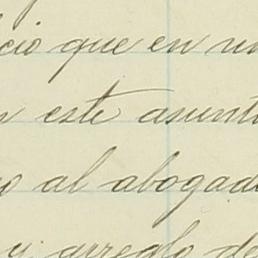 cio que en un
este asunto
o al abogado
y arreglo de